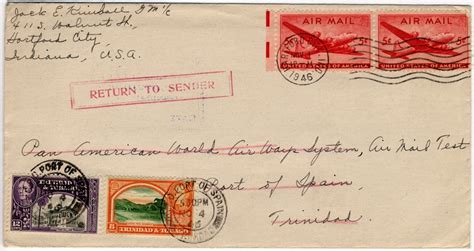 Jack E. Kindall F.M. 1/c
4113. Walnut St.,
Hartford City,
Indiana, U.S.A.
AIR MAIL AIR MAIL
5¢ 5¢
UNITED STATES OF AMERICA UNITED STATES OF AMERICA
1946
RETURN TO SENDER
Pan American World Air Ways System, Air Mail Test
Port of Spain,
Trinidad
PORT OF SPAIN
PORT OF SPAIN
5 30PM
4
TRINIDAD & TOBAGO